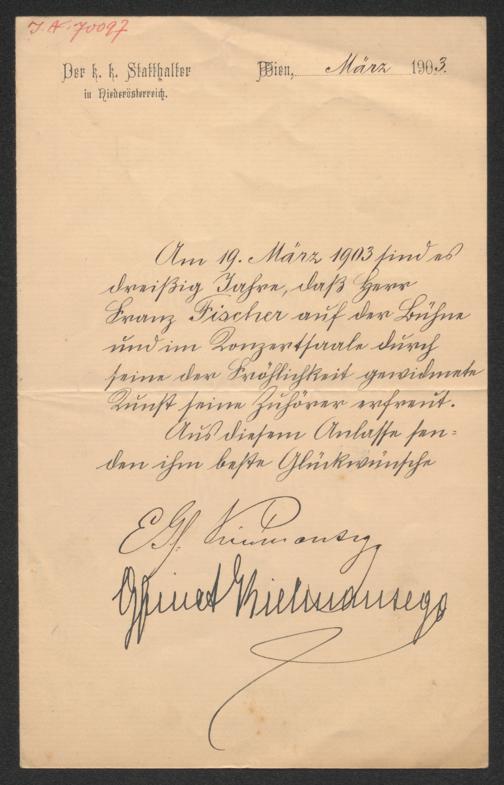 J.N. 70097
Der k. k. Statthalter
in Niederösterreich.
Wien, März 1903.
Am 19. März 1903 sind es
dreißig Jahre, daß Herr
Franz Fischer auf der Bühne
und im Konzertsaale durch
seine der Fröhlichkeit gewidmete
Kunst seine Zuhörer erfreut.
Aus diesem Anlasse sen=
den ihm beste Glückwünsche
E Gf. Kielmansegg
Kielmansegg